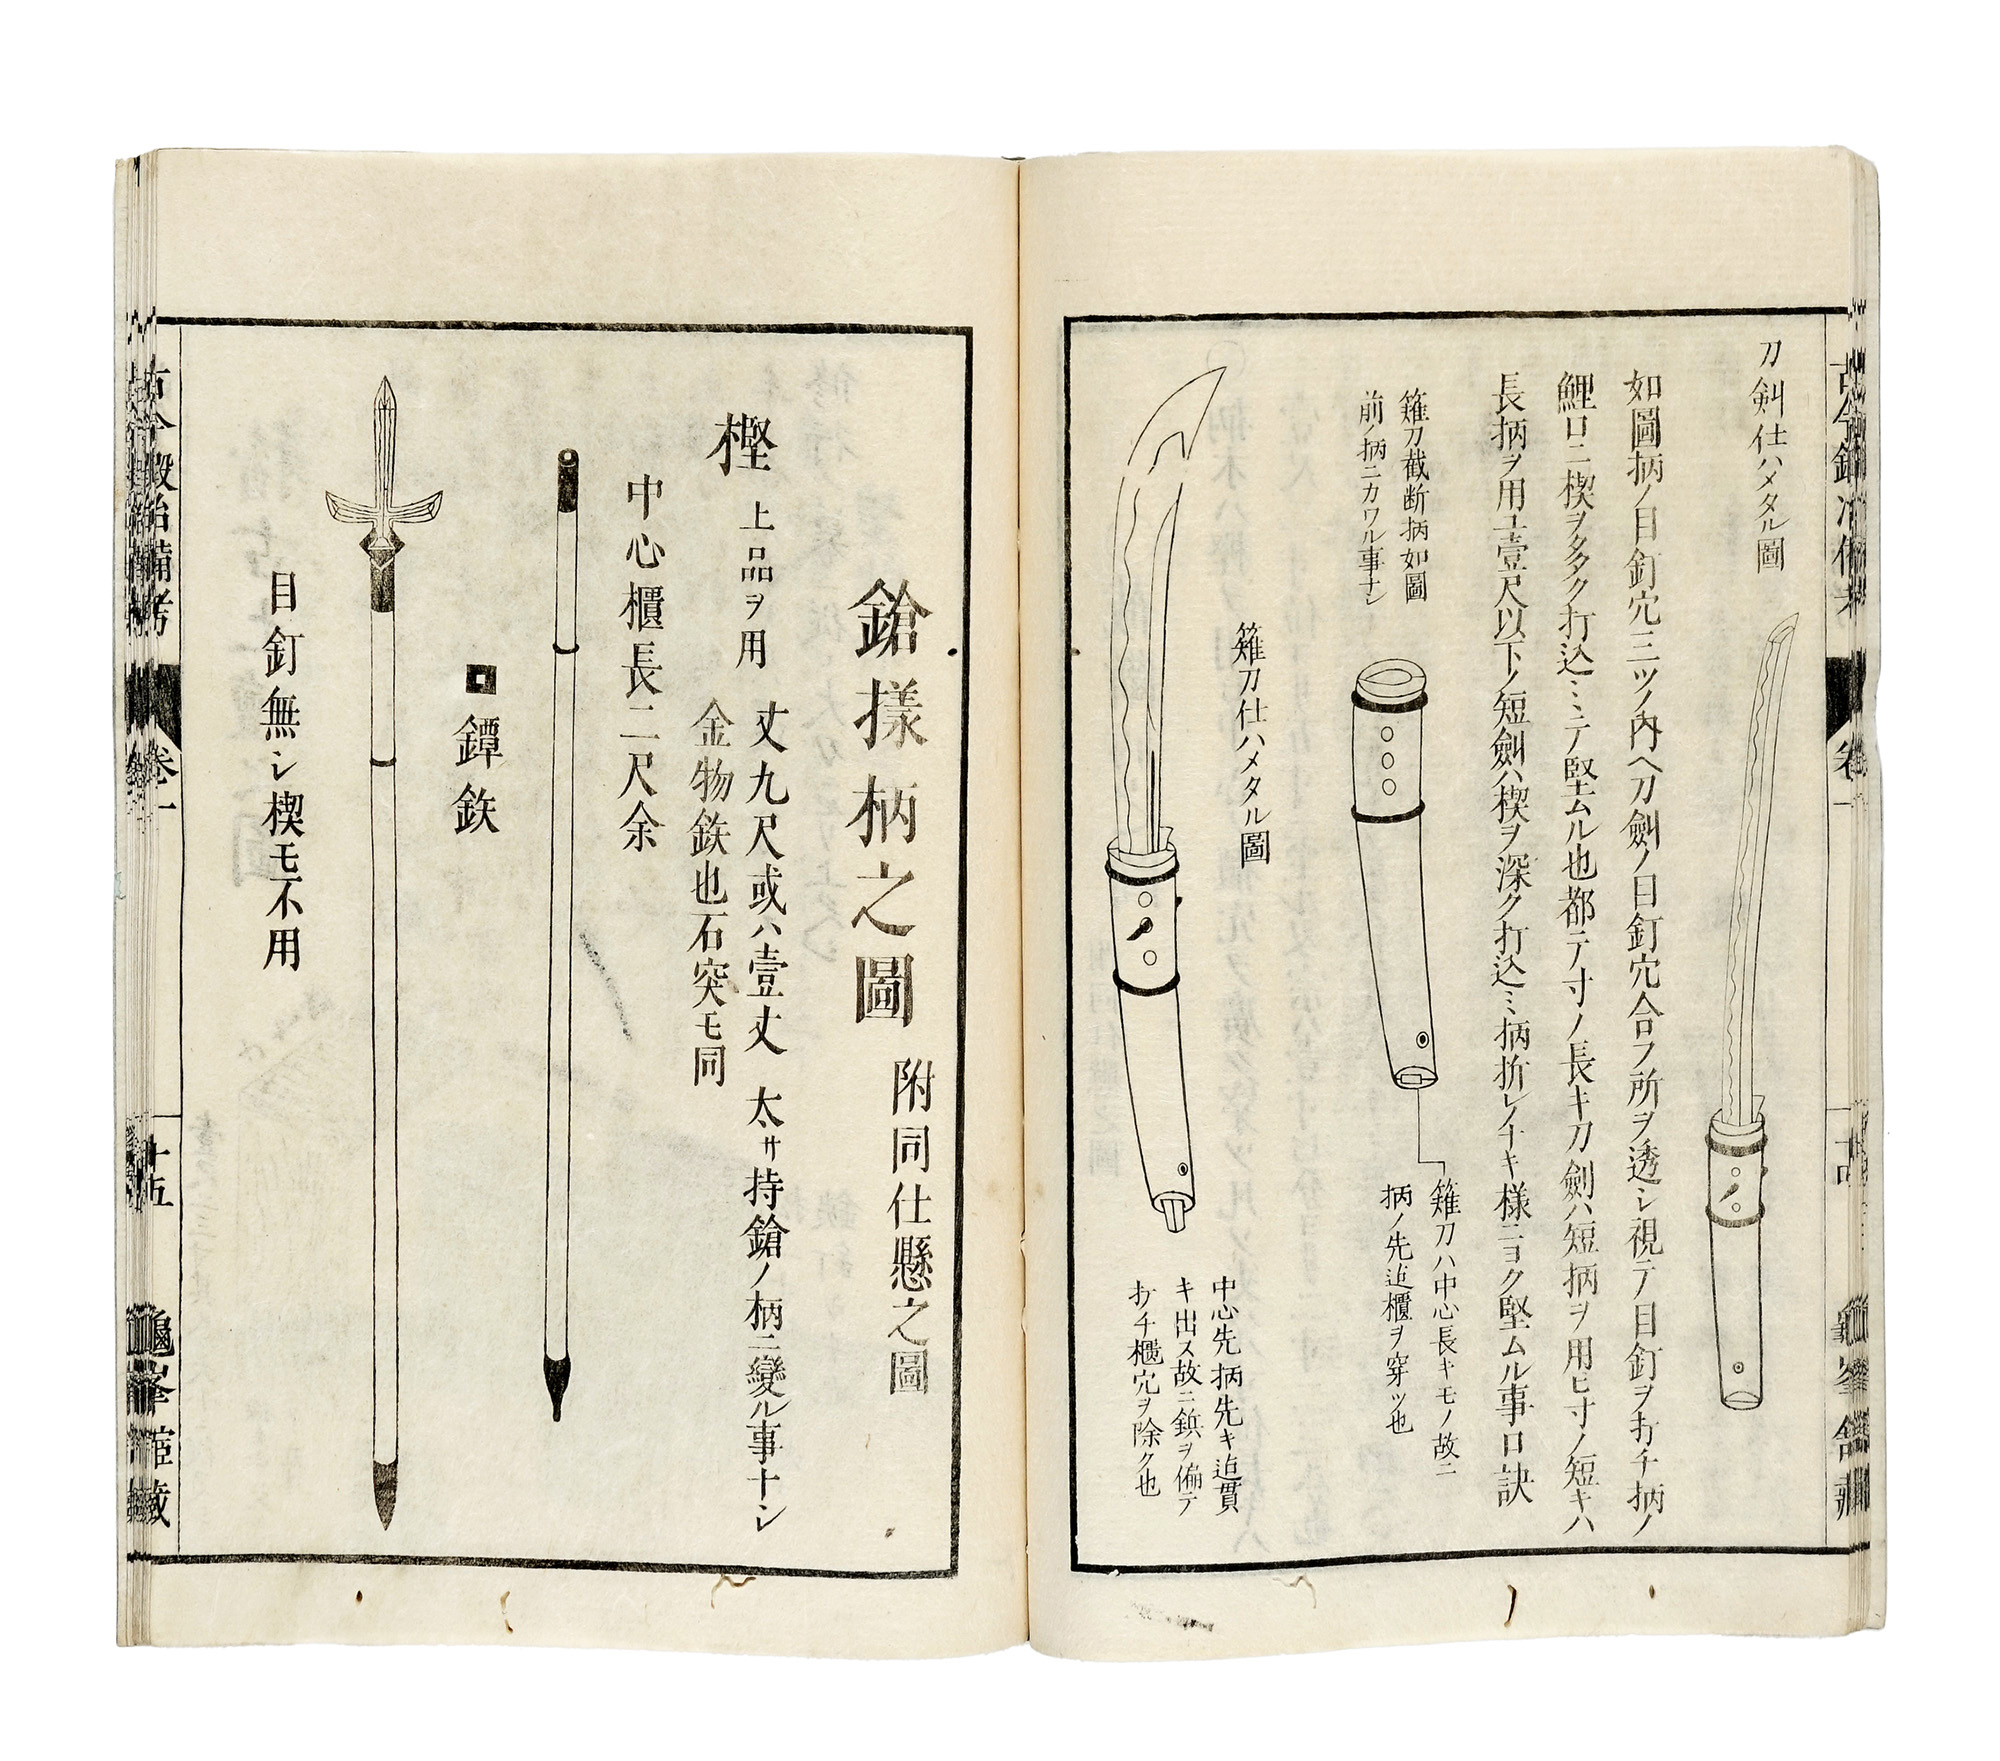 刀剣仕ハメタル圖
如圖柄ノ目釘穴三ツノ内ヘ刀劍ノ目釘穴合フ所ヲ透シ視テ目釘ヲ打チ柄ノ
鯉口ニ楔ヲ多ク打込ミテ堅ムル也都テ寸ノ長キ刀劍ハ短柄ヲ用ヒ寸ノ短キハ
長柄ヲ用ユ壹尺以下ノ短劍ハ楔ヲ深ク打込ミ柄折レノナキ様ニヨク堅ムル事口訣
薙刀截断柄如圖
前ノ柄ニカワル事ナシ
薙刀ハ中心長キモノ故ニ
柄ノ先迠櫃ヲ穿ツ也
薙刀仕ハメタル圖
中心先柄先キ迠貫
キ出ス故ニ鋲ヲ偏テ
打チ櫃穴ヲ除ク也
鎗様柄之圖
附同仕懸之圖
樫
上品ヲ用
丈九尺或ハ壹丈
太サ持鎗ノ柄ニ變ル事ナシ
金物鉄也石突モ同
中心櫃長二尺余
鐔鉄
目釘無シ楔モ不用
古今鍛冶備考
卷一
十五
龜峯館藏